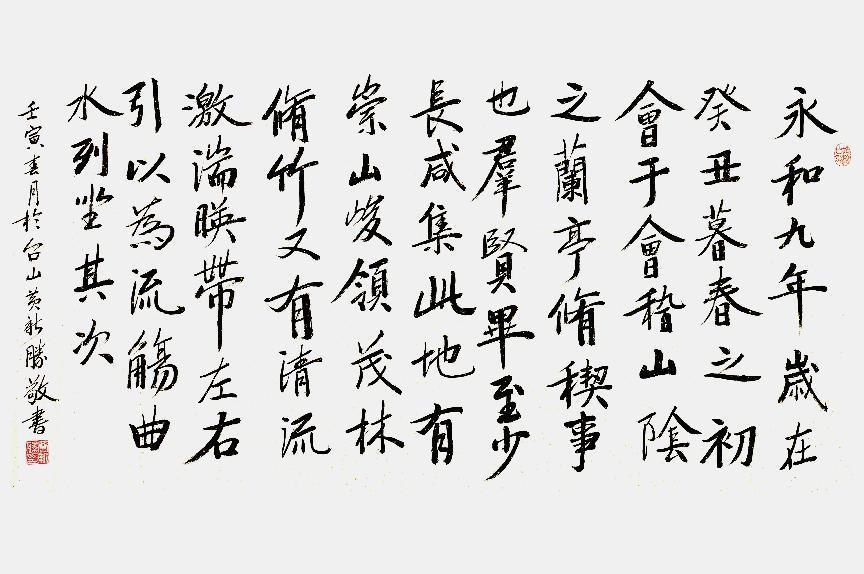 永和九年歲在
癸丑暮春之初
會于會稽山陰
之蘭亭脩稧事
也羣賢畢至少
長咸集此地有
崇山峻領茂林
脩竹又有清流
激湍暎帶左右
引以為流觴曲
水列坐其次
壬寅春月於台山黄勝敬書